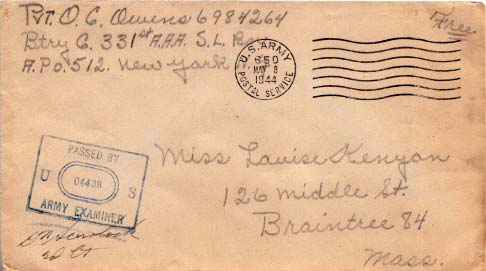 Pvt. O. C. Owens 6984264
Free
Btry C. 331st A.A.A. S. L. Bn.
A.P.O. 512. New york
U.S. ARMY
650
MAY 8
1944
POSTAL SERVICE
PASSED BY
U 04438 S
ARMY EXAMINER
Miss Louise Kenyon
126 Middle St.
Braintree 84
Mass.